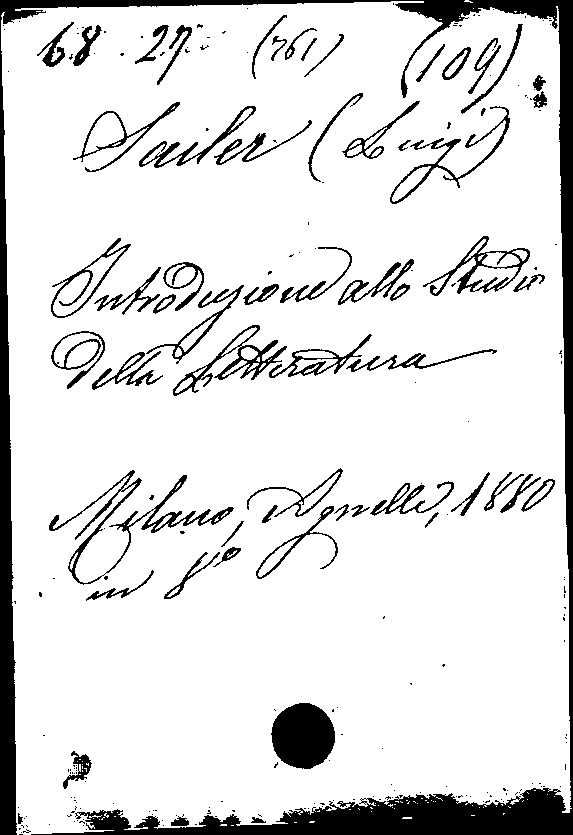 68 27 (761) (109)
Sailer (Luigi)
Introduzione allo Studio
della Letteratura
Milano, Agnelli, 1880
in 8º